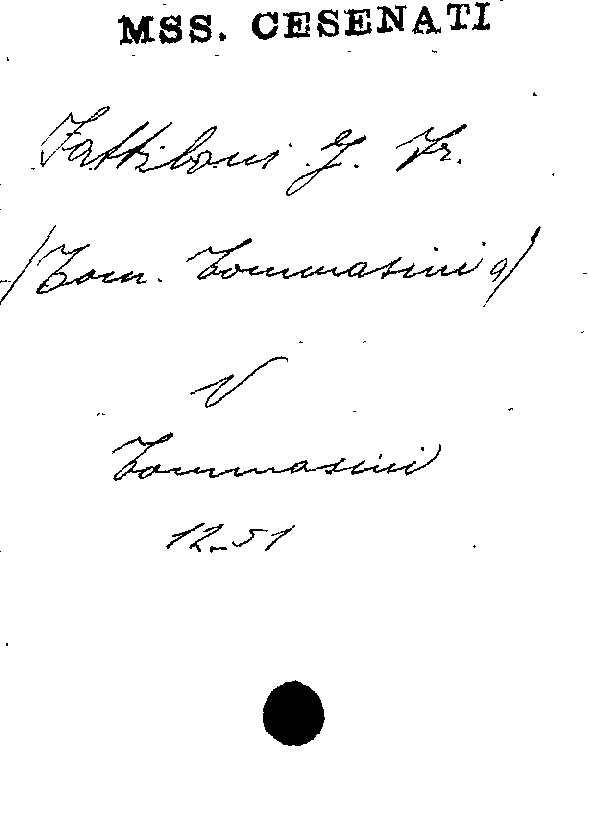 MSS. CESENATI
Fattiboni G. Fr.
(Tom. Tommasini a)
V
Tommasini
12-51